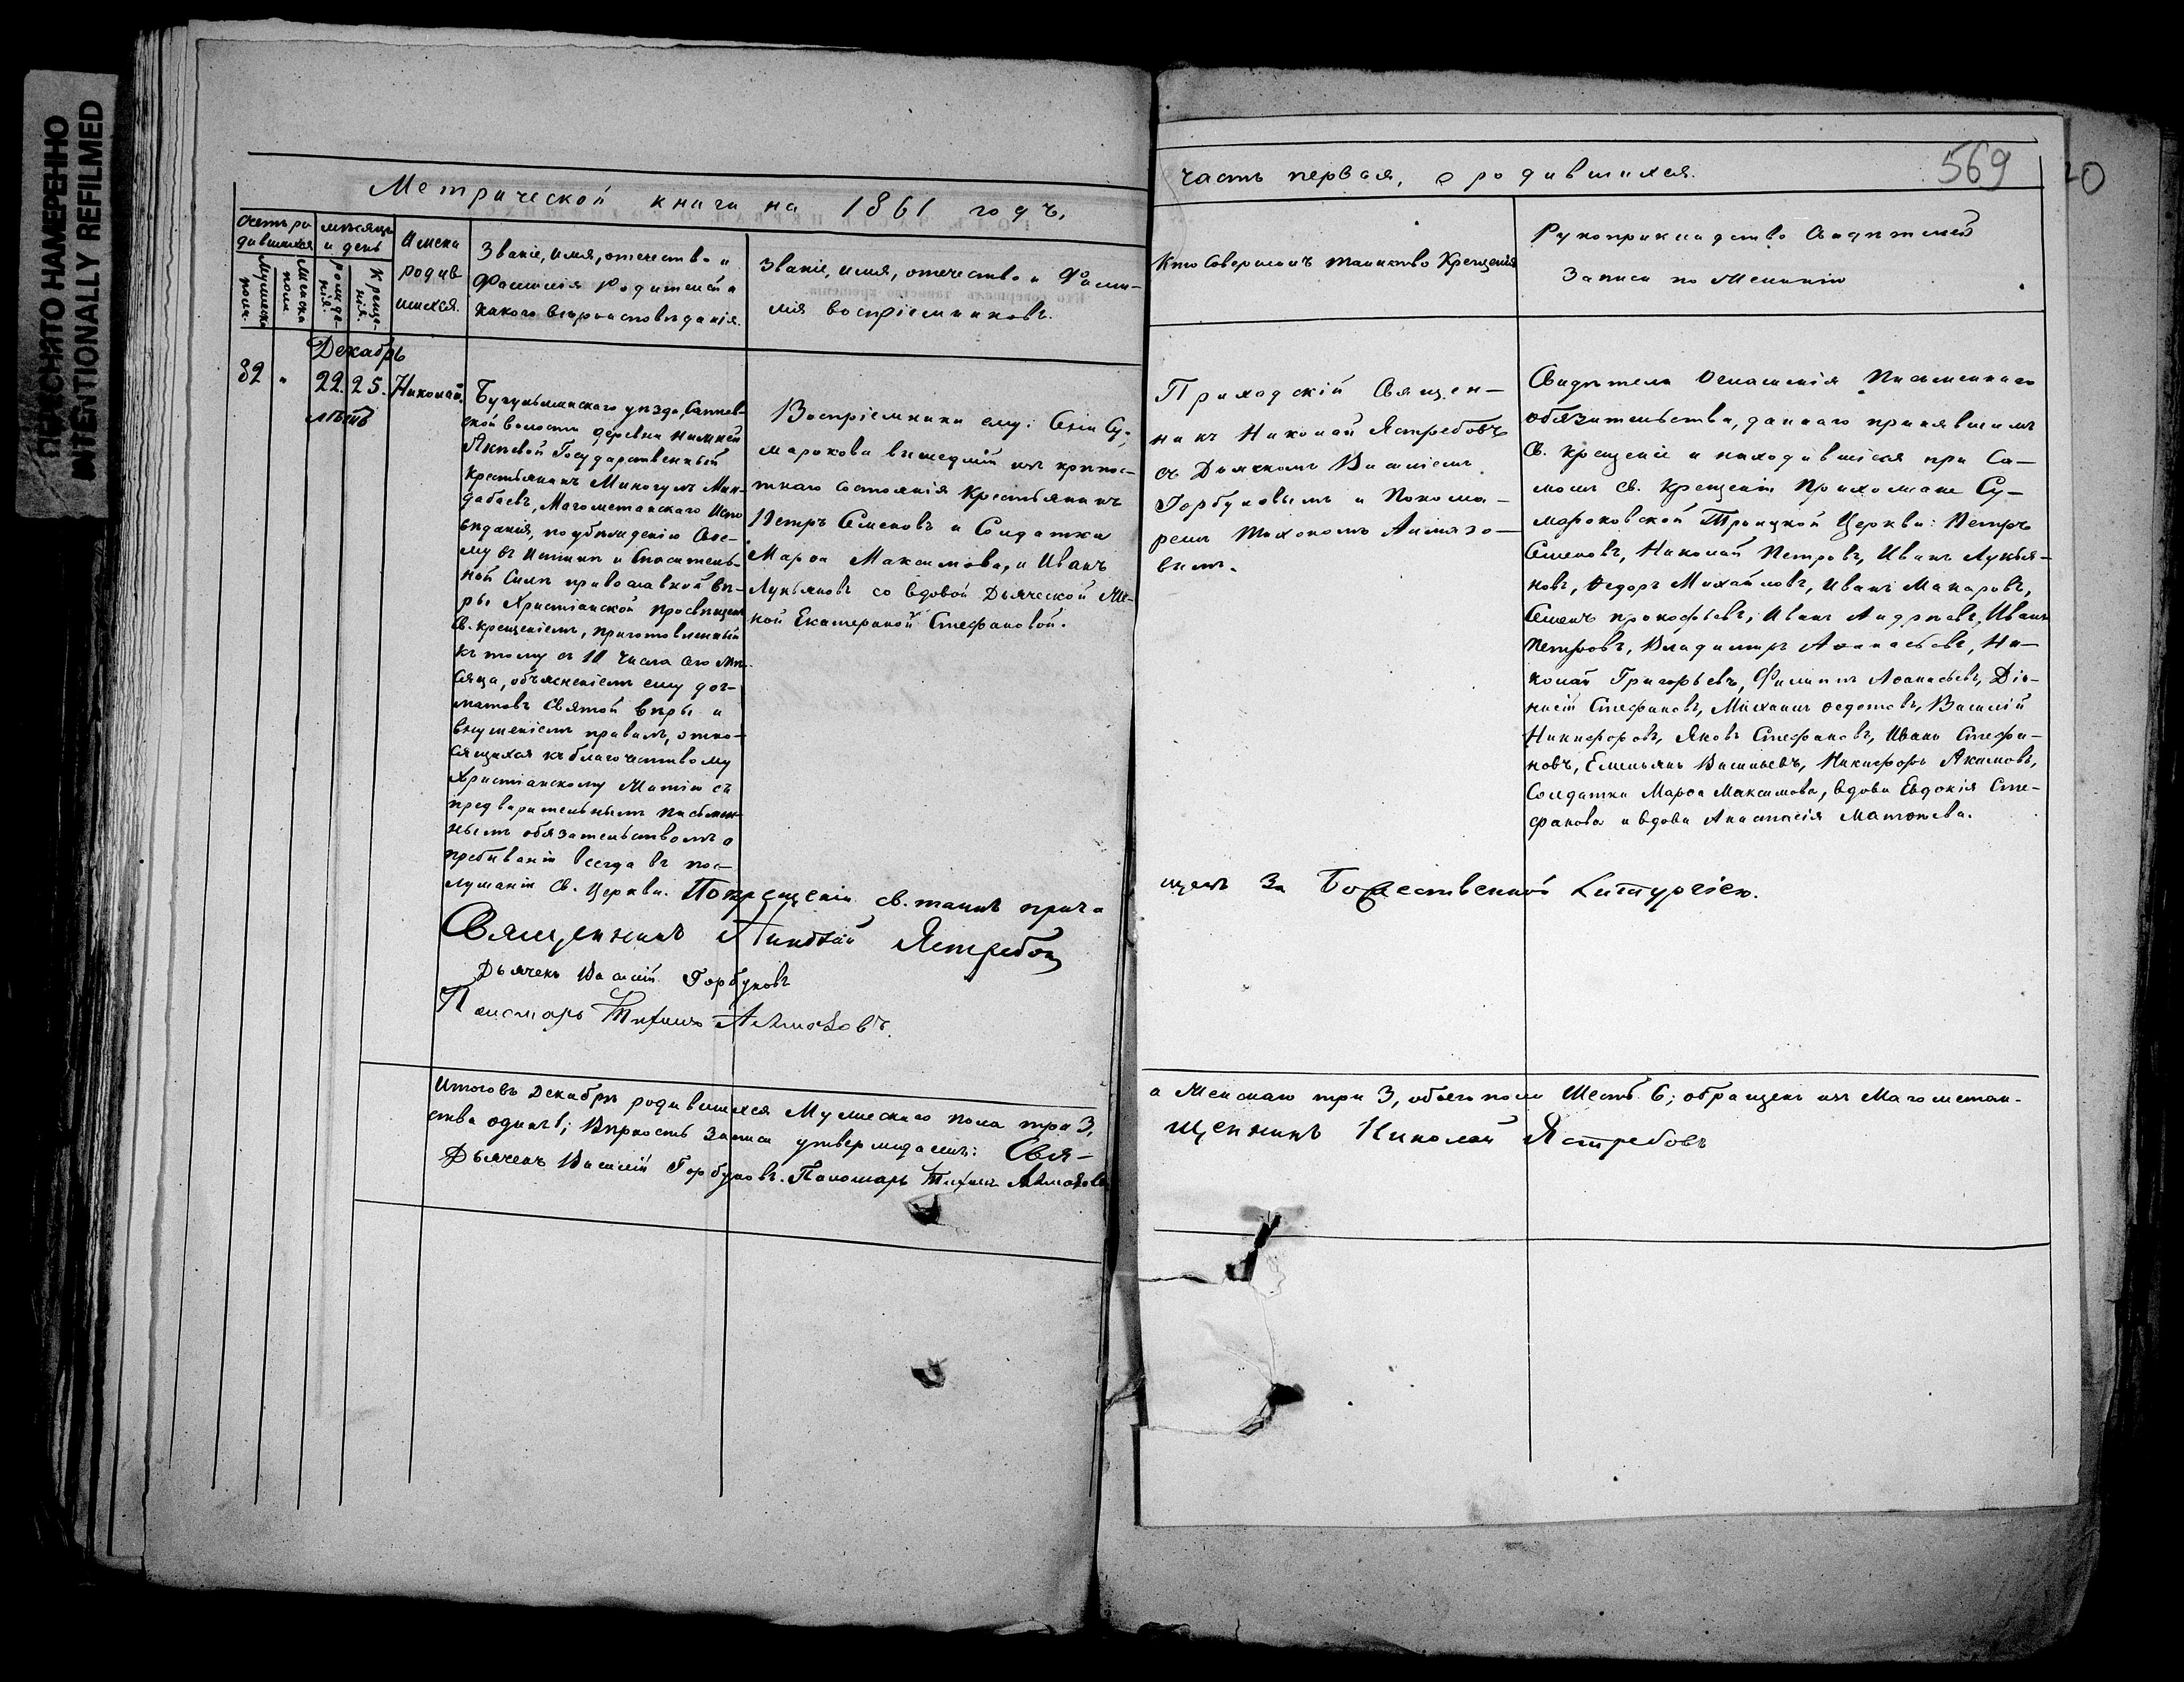 ПЕРЕСНЯТО НАМЕРЕННО
INTENTIONALLY REFILMED
Метрической книги на 1861 годъ,
часть первая, о родившихся.
569
Счетъ ро
дившихся
Мужеска
пола.
Женска
пола
мѣсяцъ
и день
рожде-
нія.
Креще-
нія.
Имена
родив
шихся.
Званіе, имя, отечество и
Фамилія Родителей и
какого вѣроисповѣданія.
Званіе, имя, отечество и Фами-
лія воспріемниковъ.
Кто Совершилъ таинство Крещенія
Рукоприкладство Свидѣтелей
Записи по Желанію
Декабрь
32 " 22. 25. Николай.
лѣтъ
Бугульминскаго уѣзда,
ской волости деревни нижней
Государственный
крестьянинъ Миногулъ Мин-
дабаевъ, Магометанскаго Испо
вѣданія, по убѣжденію Сво-
му въ Истинѣ и Спаситель-
ной Силѣ православной вѣ-
ры Христіанской просвѣщенъ
Св. крещеніемъ, приготовленный
къ тому съ 10 числа сего мѣ-
сяца, объясненіемъ ему дог-
матовъ Святой вѣры и
внушеніемъ правилъ, отно-
сящихся къ благочестивому
Христіанскому Житію съ
предварительнымъ письмен-
нымъ обязательствомъ о
пребываніи всегда въ пос-
лушаніи Св. Церкви. По крещеніи св. таинъ прича
щенъ За Божественной Литургіею.
Воспріемники ему: Села Су-
марокова вышедшій изъ крѣпос-
тнаго состоянія Крестьянинъ
Петръ Семеновъ и Солдатка
Марѳа Максимова, и Иванъ
Лукьяновъ со вдовой Дьяческой Же-
ной Екатериной Стефановой.
Приходскій Священ-
никъ Николай Ястребовъ
съ Дьячкомъ Василіемъ
Горбуновымъ и Понома-
ремъ Тихономъ Алмазо-
вымъ.
Свидѣтели Оглашенія Письменнаго
обязательства, даннаго принявшимъ
Св. крещеніе и находившіеся при Са-
момъ св. Крещеніи Прихожане Су-
мароковской Троицкой Церкви: Петръ
Семеновъ, Николай Петровъ, Иванъ Лукья-
новъ, Ѳедоръ Михайловъ, Иванъ Макаровъ,
Семенъ прокофьевъ, Иванъ Андреевъ, Иванъ
Петровъ, Владимиръ Аѳанасьевъ, Ни-
колай Григорьевъ, Филиппъ Аѳанасьевъ, Діо-
нисій Стефановъ, Михаилъ Ѳедотовъ, Василій
Никифоровъ, Яковъ Стефановъ, Иванъ Стефа-
новъ, Емельянъ Васильевъ, Никифоръ Акимовъ,
Солдатка Марѳа Максимова, вдова Евдокія Сте-
фанова и вдова Анастасія Матвѣева.
Священникъ Николай Ястребовъ
Дьячекъ Василій Горбуновъ
Пономарь Тихонъ Алмазовъ.
Итого въ Декабрѣ родившихся Мужескаго пола три 3,
а Женскаго три 3, обоего пола Шесть 6; обращенъ изъ Магометан-
ства одинъ 1; Вѣрность Записи утверждаемъ: Свя-
щенникъ Николай Ястребовъ
Дьячекъ Василій Горбуновъ. Пономарь Тихонъ Алмазовъ